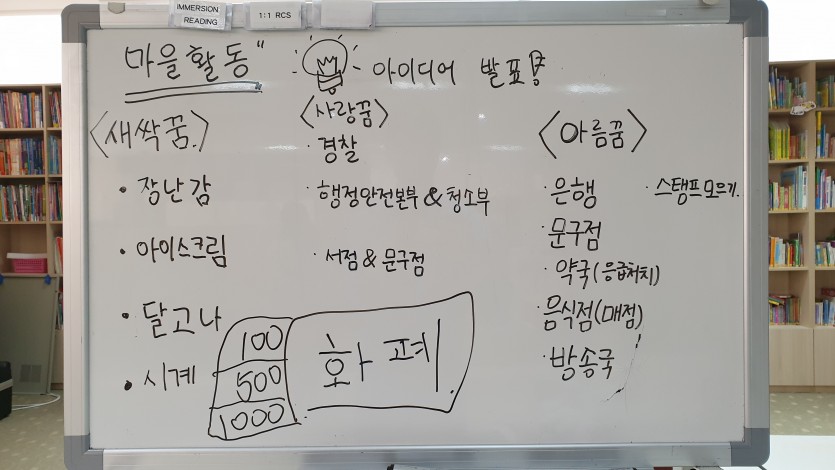 IMMERSION
READING
1:1 RCS
"마을활동" 아이디어 발표
<새싹꿈>
· 장난감
· 아이스크림
· 달고나
· 시계
<사랑꿈>
· 경찰
· 행정안전본부 & 청소부
· 서점 & 문구점
100
500
1000
화폐
<아름꿈>
· 은행
· 문구점
· 약국(응급처치)
· 음식점(매점)
· 방송국
· 스탬프 모으기.